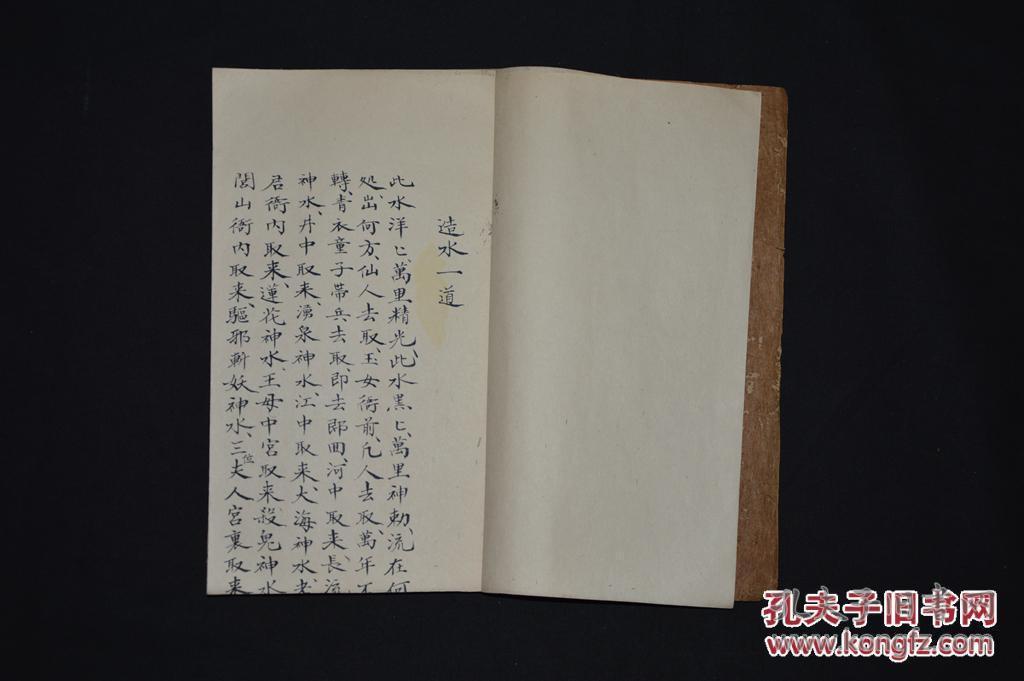 造水一道
此水洋〻、萬里精光、此水黑〻、萬里神勅、流在何
処、出何方、仙人去取、玉女衙前、凢人去取、萬年不
轉、青衣童子帶兵去取、即去即回、河中取来、長流
神水、井中取来、湧泉神水、江中取来、大海神水、老
君衙内取来、蓮花神水、王母中宮取来、殺鬼神水
閭山衙内取来、驅邪斬妖神水、三位夫人宮裏取来
孔夫子旧书网
www.kongfz.com